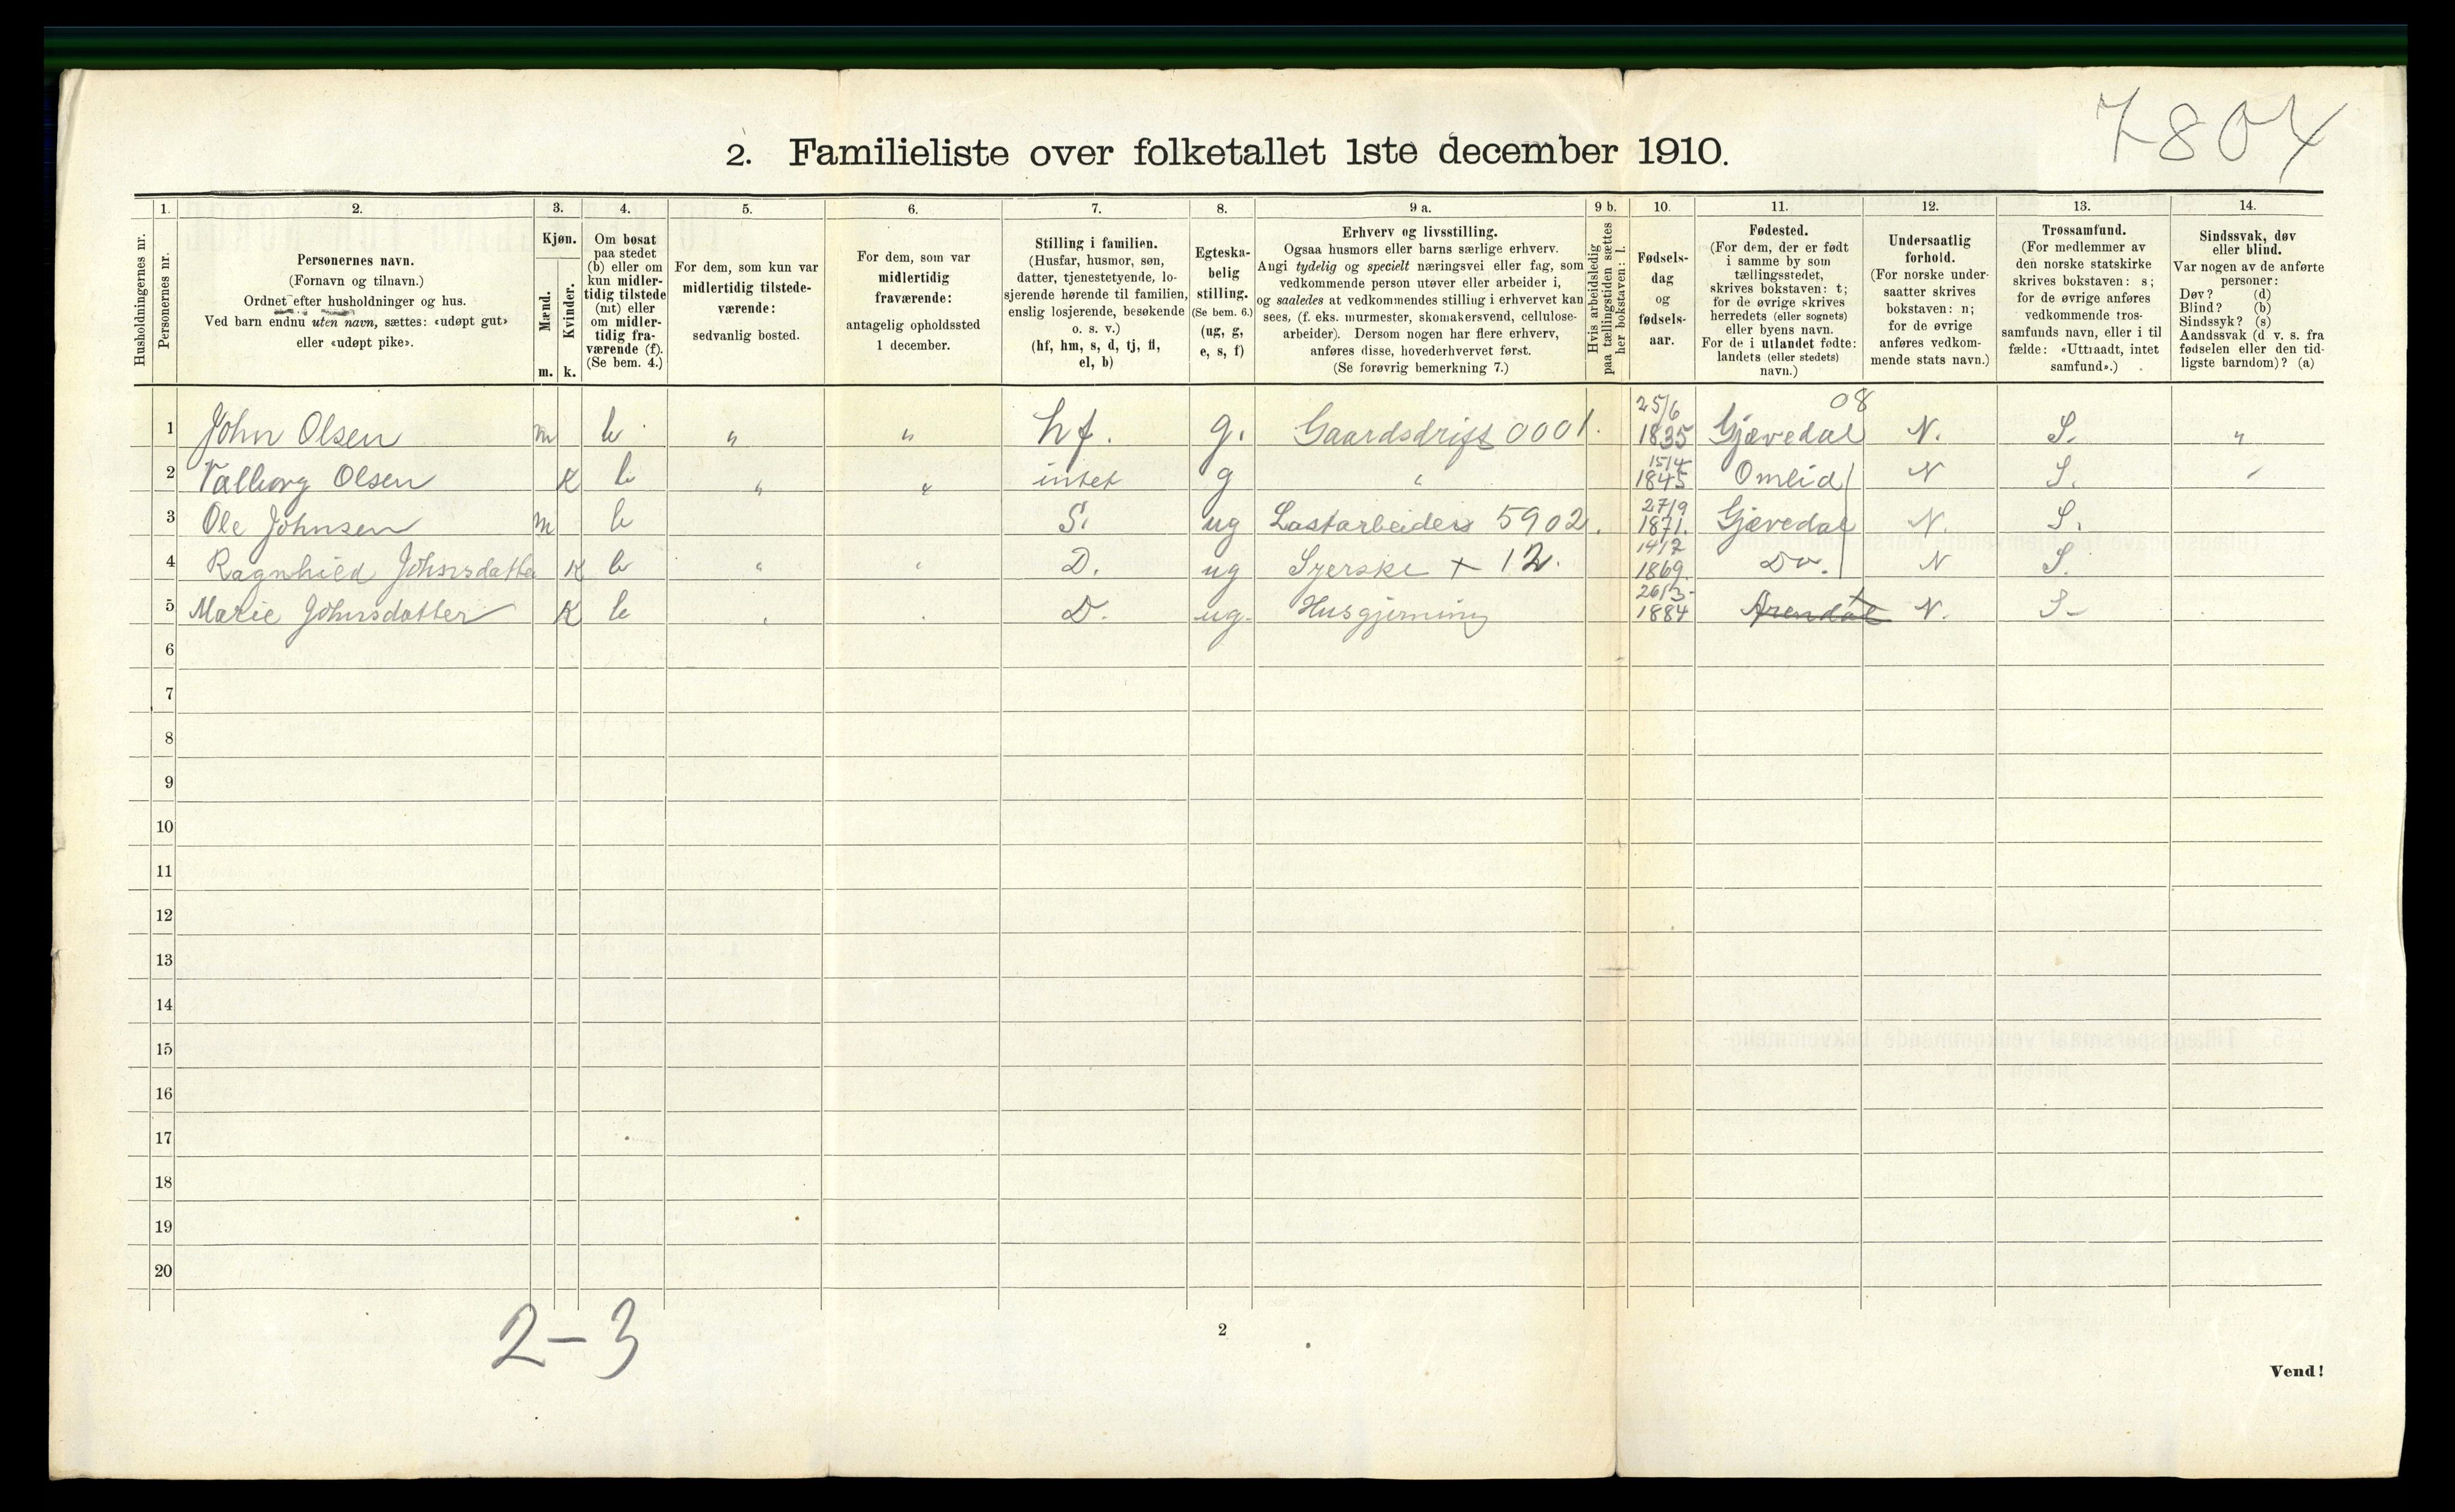 7804
2. Familieliste over folketallet 1ste december 1910.
1. 2. 3. 4. 5. 6. 7. 8. 9 a. 9 b. 10. 11. 12. 13. 14.
Husholdningernes nr.
Personernes nr.
Personernes navn.
(Fornavn og tilnavn.)
Ordnet efter husholdninger og hus.
Ved barn endnu uten navn, sættes: «udøpt gut»
eller «udøpt pike».
Kjøn.
Mænd.
Kvinder.
m. k.
Om bosat
paa stedet
(b) eller om
kun midler-
tidig tilstede
(mt) eller
om midler-
tidig fra-
værende (f).
(Se bem. 4.)
For dem, som kun var
midlertidig tilstede-
værende:
sedvanlig bosted.
For dem, som var
midlertidig
fraværende:
antagelig opholdssted
1 december.
Stilling i familien.
(Husfar, husmor, søn,
datter, tjenestetyende, lo-
sjerende hørende til familien,
enslig losjerende, besøkende
o. s. v.)
(hf, hm, s, d, tj, fl,
el, b)
Egteska-
belig
stilling.
(Se bem. 6.)
(ug, g,
e, s, f)
Erhverv og livsstilling.
Ogsaa husmors eller barns særlige erhverv.
Angi tydelig og specielt næringsvei eller fag, som
vedkommende person utøver eller arbeider i,
og saaledes at vedkommendes stilling i erhvervet kan
sees, (f. eks. murmester, skomakersvend, cellulose-
arbeider). Dersom nogen har flere erhverv,
anføres disse, hovederhvervet først.
(Se forøvrig bemerkning 7.)
Hvis arbeidsledig
paa tællingstiden sættes
her bokstaven: l.
Fødsels-
dag
og
fødsels-
aar.
Fødested.
(For dem, der er født
i samme by som
tællingsstedet,
skrives bokstaven: t;
for de øvrige skrives
herredets (eller sognets)
eller byens navn.
For de i utlandet fødte:
landets (eller stedets)
navn.)
Undersaatlig
forhold.
(For norske under-
saatter skrives
bokstaven: n;
for de øvrige
anføres vedkom-
mende stats navn.)
Trossamfund.
(For medlemmer av
den norske statskirke
skrives bokstaven: s;
for de øvrige anføres
vedkommende tros-
samfunds navn, eller i til
fælde: «Uttraadt, intet
samfund».)
Sindssvak, døv
eller blind.
Var nogen av de anførte
personer:
Døv? (d)
Blind? (b)
Sindssyk? (s)
Aandssvak (d v. s. fra
fødselen eller den tid-
ligste barndom)? (a)
08
1 John Olsen m b „ „ hf. g. Gaardsdrift 0001. 25/6 1835 Gjøvedal N. S. „
2 Valborg Olsen K b „ „ intet g „ 15/4 1845 Omlid N S.
3 Ole Johnsen m b S. ug Lastarbeider 5902. 27/9 1871. Gjøvedal N. S.
4 Ragnhild Johnsdatter K b „ „ D. ug Syerske + 12. 14/7 1869. Do. N S.
5 Marie Johnsdatter K b D. ug. Husgjerning 26/3- 1884 Arendal t N. S-
6
7
8
9
10
11
12
13
14
15
16
17
18
19
20
2-3
2
Vend!